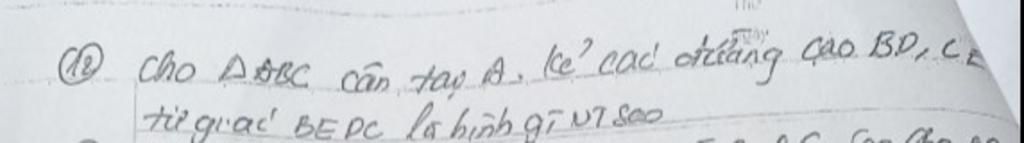 (12) Cho ΔABC cân tại A. kẻ các đường cao BD, CE
tứ giác BEDC là hình gì vì sao